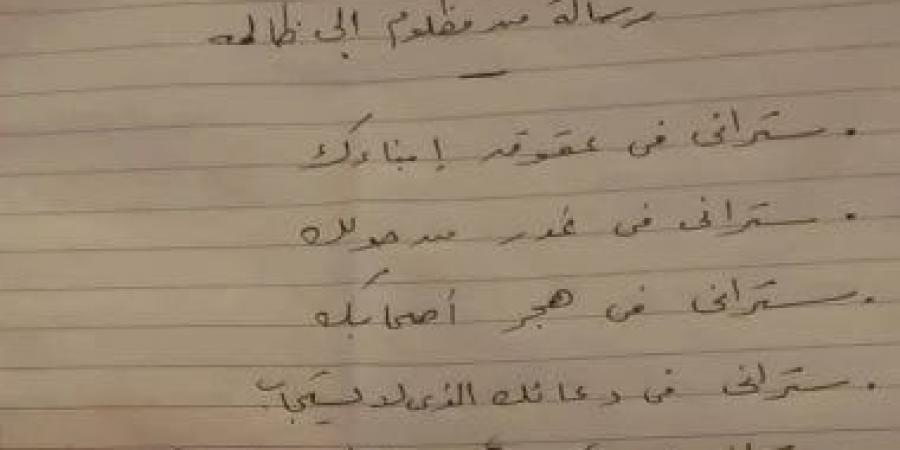 رسالة من مظلوم إلى ظالمه
. ستراني في عقوق إبناءك
. ستراني في غدر من حولك
. ستراني في هجر أصحابك
. ستراني في دعائك الذي لا يستجاب